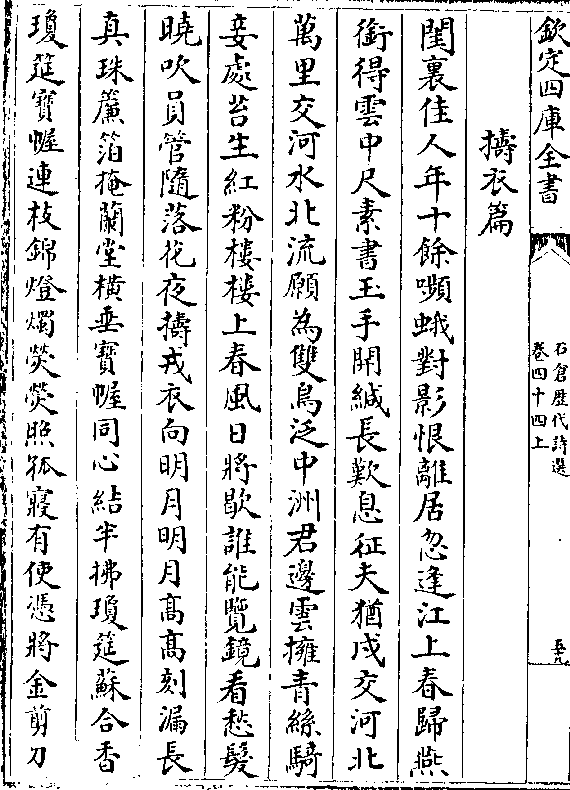 欽定四庫全書
石倉歷代詩選
卷四十四上
擣衣篇
閨裏佳人年十餘嚬蛾對影恨離居忽逢江上春歸燕
銜得雲中尺素書玉手開緘長歎息征夫猶戍交河北
萬里交河水北流願為雙鳥泛中洲君邊雲擁青絲騎
妾處苔生紅粉樓樓上春風日將歇誰能覽鏡看愁髮
曉吹員管隨落花夜擣戎衣向明月明月髙髙刻漏長
真珠簾箔掩蘭堂横垂寶幄同心結半拂瓊筵蘇合香
瓊筵寶幄連枝錦燈燭熒熒照孤寢有使憑將金剪刀